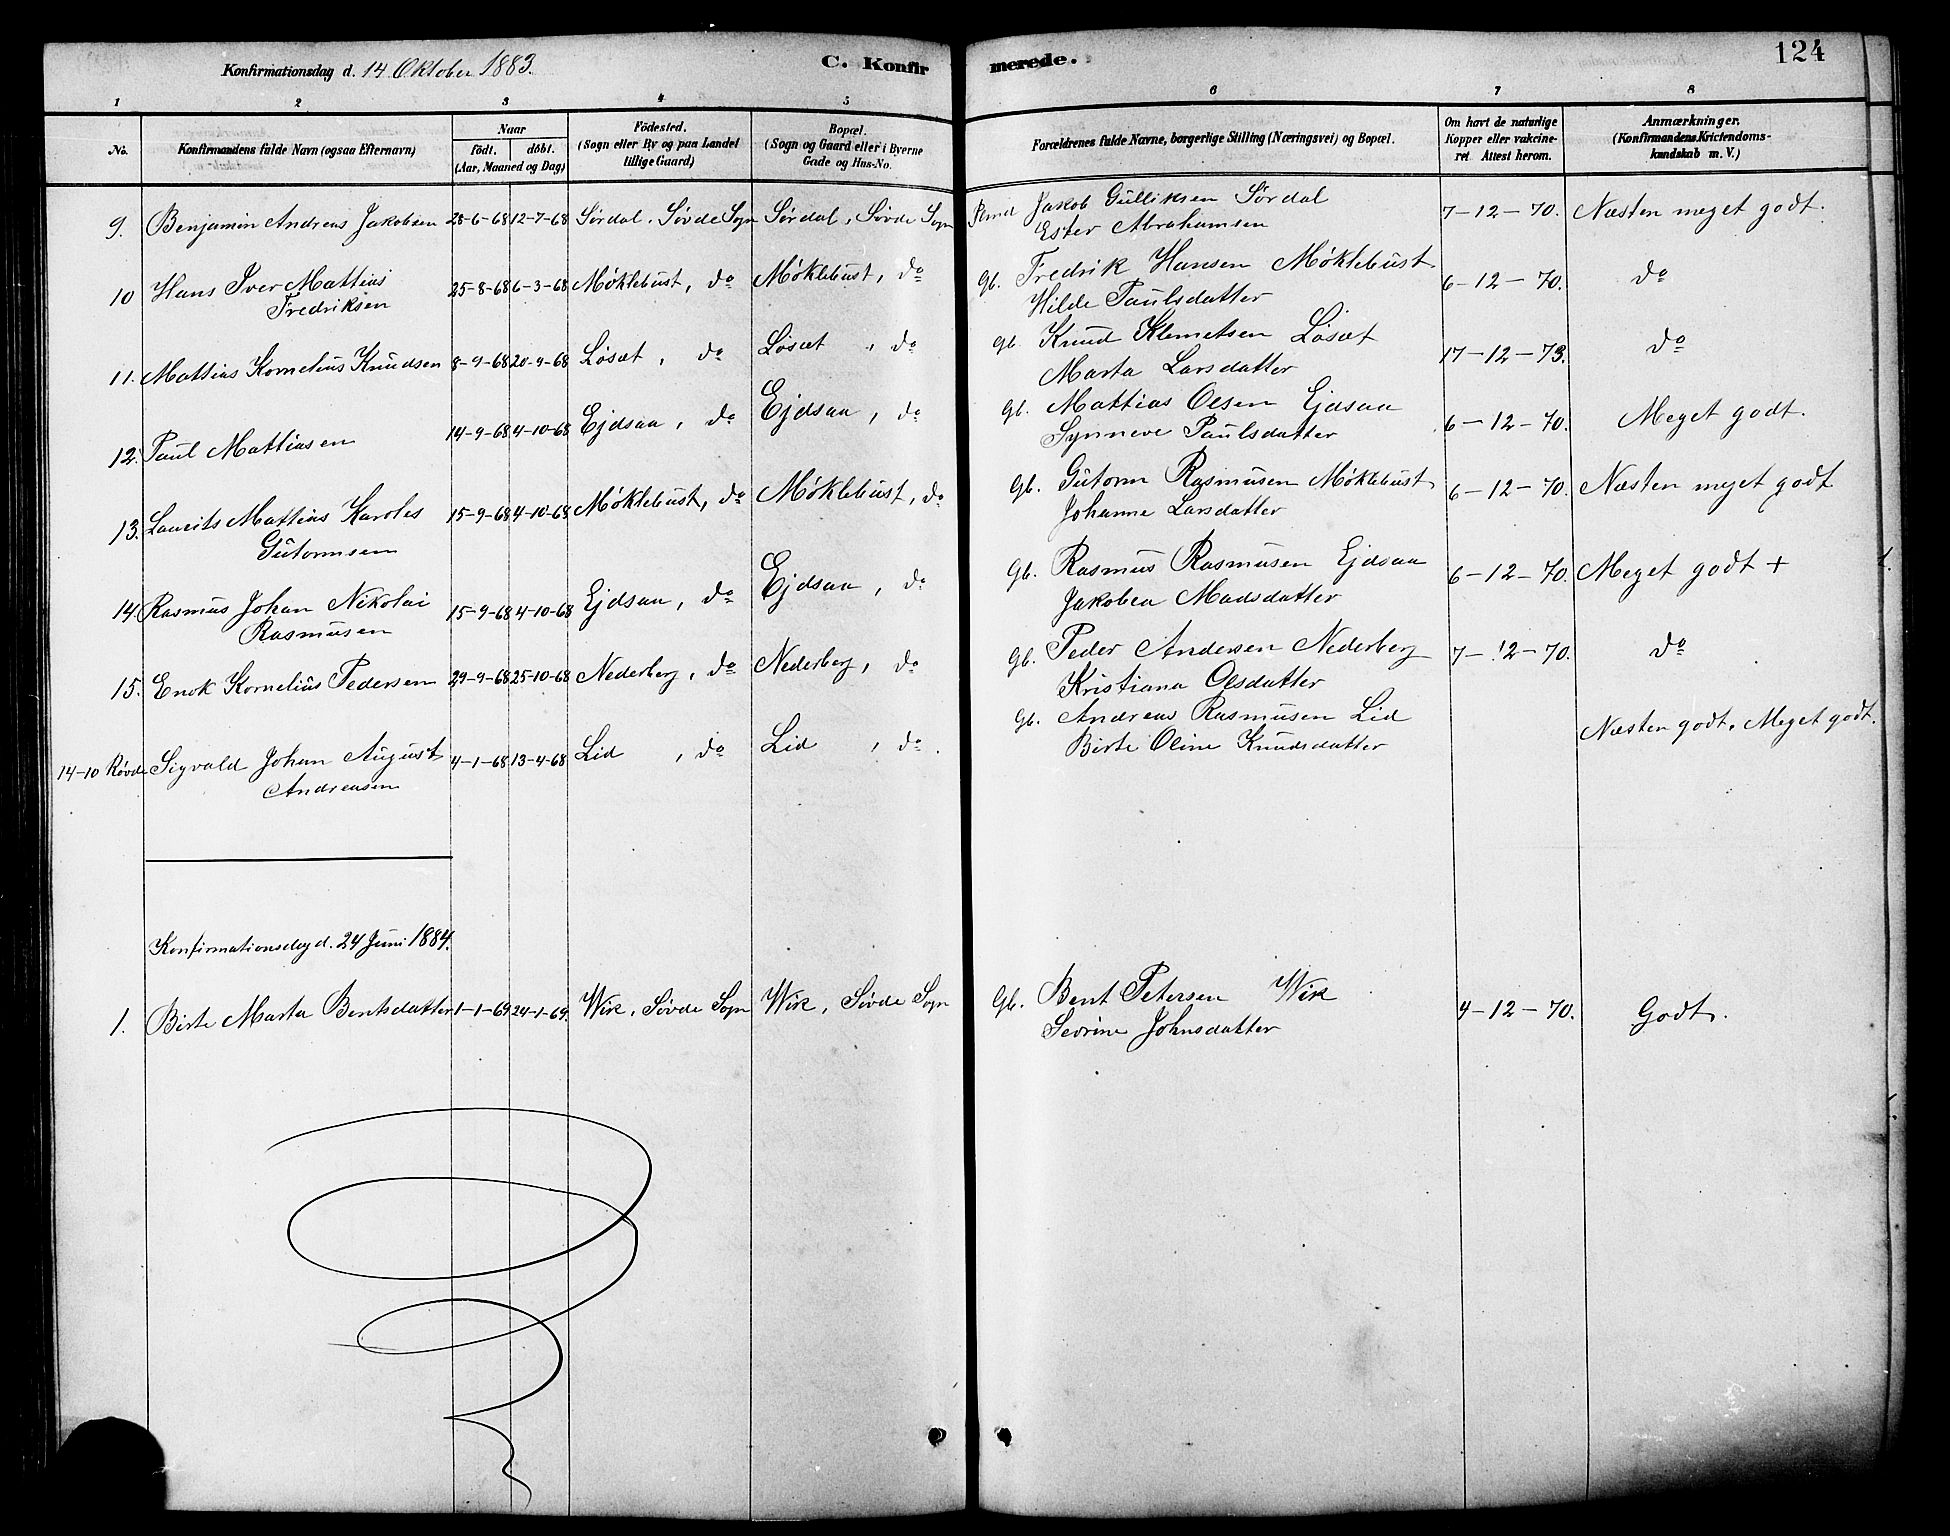 Konfirmationsdag d. 14 Oktober 1883.
C. Konfirmerede.
124
1 2 3 4 5 6 7 8
No.
Konfirmandens fulde Navn (ogsaa Efternavn)
Naar
födt. döbt.
(Aar, Maaned og Dag)
Födested.
(Sogn eller By og paa Landet
tillige Gaard)
Bopæl.
(Sogn og Gaard eller i Byerne
Gade og Hus-No.
Forældrenes fulde Navne, borgerlige Stilling (Næringsvei) og Bopæl.
Om havt de naturlige
Kopper eller vakcine-
ret Attest herom.
Anmærkninger.
(Konfirmandens Kristendoms-
kundskab m. V.)
9. Benjamin Andreas Jakobsen 28-6-68 12-7-68 Sørdal, Søvde Sogn Sørdal, Søvde Sogn Jakob Gulliksen Sørdal 7-12-70. Næsten meget godt.
Ester Abrahamsen
10 Hans Iver Mattias 25-8-68 6-3-68 Møklebust, do Møklebust, do Gb. Fredrik Hansen Møklebust 6-12-70. do
Fredriksen Hilde Paulsdatter
11. Mattias Kornelius Knudsen 8-9-68 20-9-68 Løsæt, do Løsæt, do Gb. Knud Klemetsen Løsæt 17-12-73. do
Marta Larsdatter
12. Paul Mattiasen 14-9-68 4-10-68 Ejdsaa, do Ejdsaa, do Gb. Mattias Olsen Ejdsaa 6-12-70. Meget godt.
Synneve Paulsdatter
13. Laurits Mattias Karoles 15-9-68 4-10-68 Møklebust, do Møklebust, do Gb. Gutorm Rasmusen Møklebust 6-12-70. Næsten meget godt
Gutormsen Johanne Larsdatter
14. Rasmus Johan Nikolai 15-9-68 4-10-68 Ejdsaa, do Ejdsaa, do Gb. Rasmus Rasmusen Ejdsaa 6-12-70. Meget godt +
Rasmusen Jakobea Madsdatter
15. Enok Kornelius Pedersen 29-9-68 25-10-68 Nederberg, do Nederberg, do Gb. Peder Andersen Nederberg 7-12-70. do
Kristiana Olsdatter
14-10 Røvde Sigvald Johan August 4-1-68 13-4-68 Lid, do Lid, do. Gb. Andreas Rasmusen Lid Næsten godt. Meget godt.
Andreasen Birte Oline Knudsdatter
Konfirmationsdag d. 24 Juni 1884.
1. Birte Marta Bentsdatter 1-1-69 24-1-69. Wik, Søvde Sogn Wik, Søvde Sogn Gb. Bent Petersen Wik 4-12-70. Godt.
Sevrine Johnsdatter